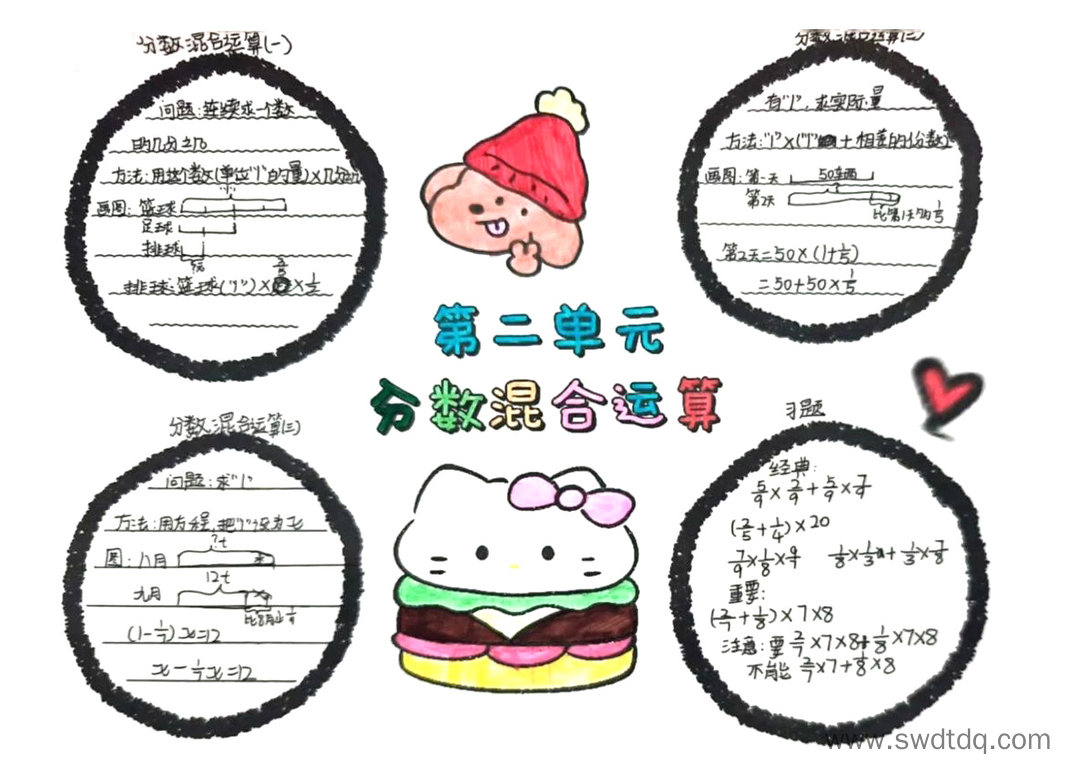 分数混合运算(一)
问题:连续求一个数
的几分之几
方法:用这个数(单位"1"的量)×几分之几
画图:篮球
足球
排球
排球:篮球("1")×2/5×1/2
分数混合运算(二)
有"1",求实际量
方法:"1"×("1"+相差的份数)
画图:第一天 50车辆
第2天
比第1天多1/5
第2天=50×(1+1/5)
=50+50×1/5
第二单元
分数混合运算
分数混合运算(三)
问题:求"1"
方法:用方程,把"1"设为x
图:八月 ?t
12t
九月
(1-1/7)x=12
x-1/7x=12
习题
经典:
5/9×2/9+5/9×7/9
(2/5+1/4)×20
7/9×1/8×9/7
1/8×1/3+1/3×7/8
重要:
(2/7+1/8)×7×8
注意:要2/7×7×8+1/8×7×8
不能2/7×7+1/8×8
www.swdtdq.com